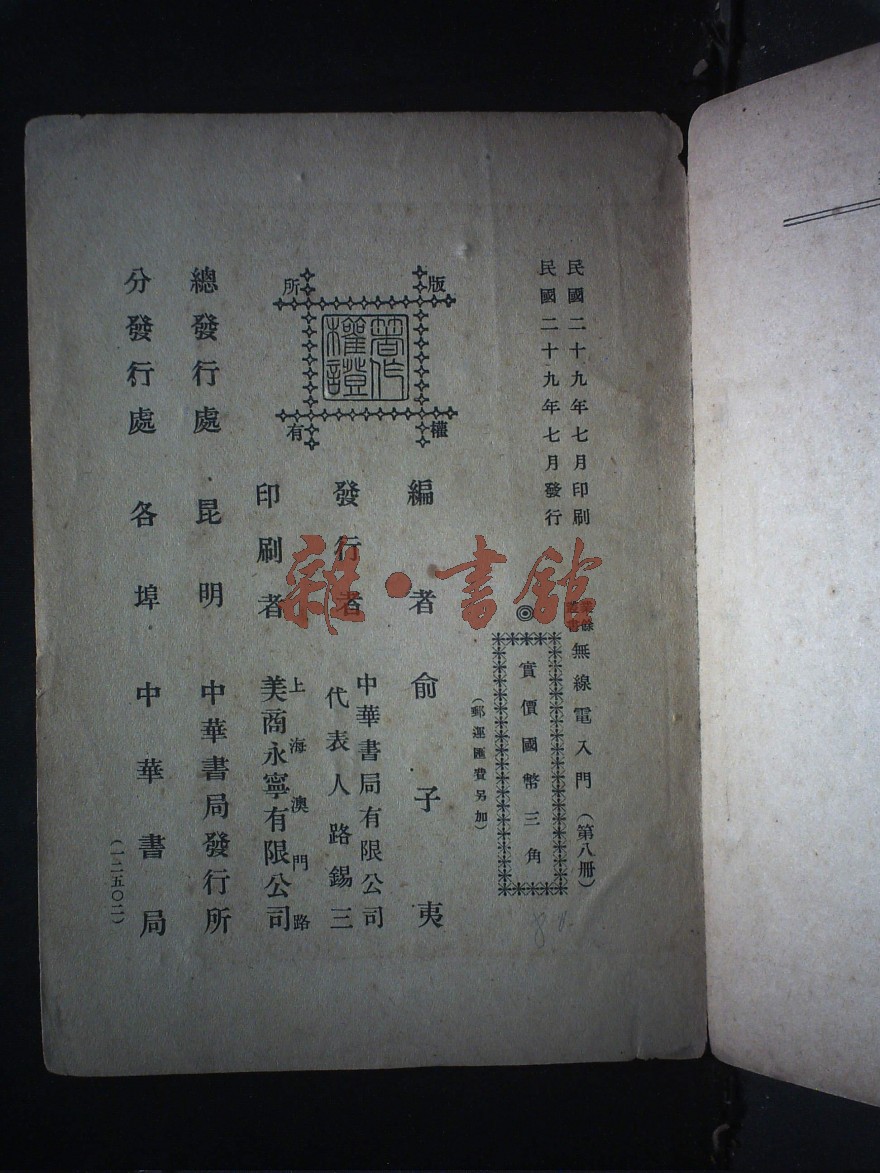 民國二十九年七月印刷
民國二十九年七月發行
無線電入門（第八冊）
◎
實價國幣三角
（郵運匯費另加）
版權所有
著作權證
編者俞子夷
發行者
中華書局有限公司
代表人路錫三
印刷者
上海澳門路
美商永寧有限公司
總發行處昆明中華書局發行所
分發行處各埠中華書局
（一二五〇二）
雜·書館